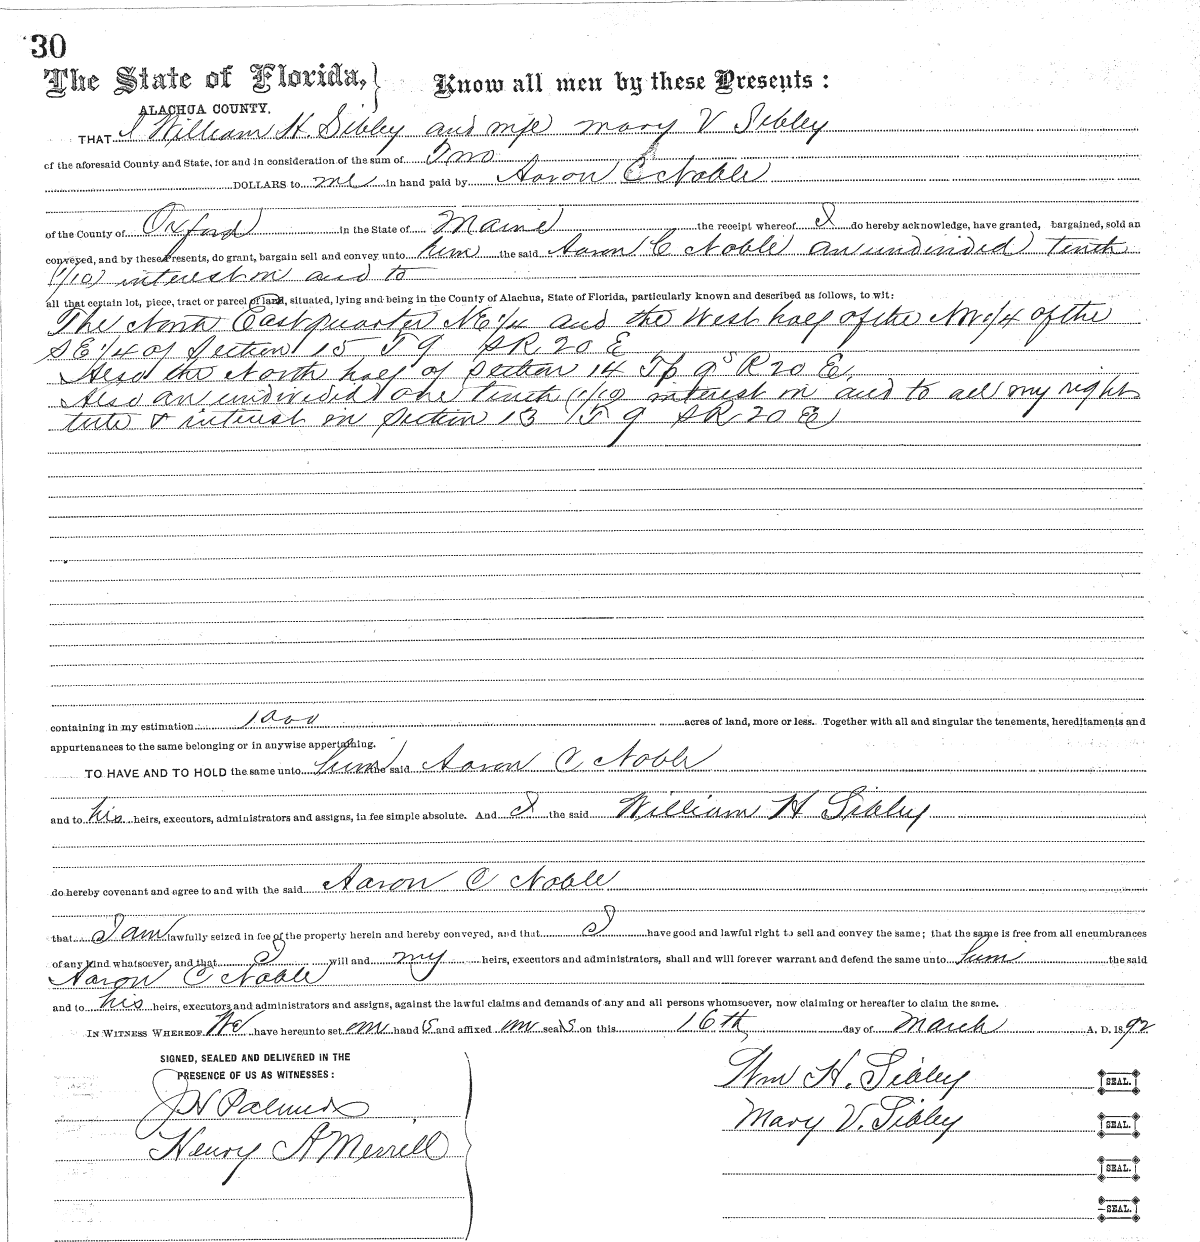 30
The State of Florida, } Know all men by these Presents :
ALACHUA COUNTY.
THAT I William H. Sibley and wife Mary V Sibley
of the aforesaid County and State, for and in consideration of the sum of Two
DOLLARS to me in hand paid by Aaron C Noble
of the County of Oxford in the State of Maine the receipt whereof I do hereby acknowledge, have granted, bargained, sold an
conveyed, and by these Presents, do grant, bargain sell and convey unto him the said Aaron C Noble an undivided tenth
(1/10) interest in and to
all that certain lot, piece, tract or parcel of land, situated, lying and being in the County of Alachua, State of Florida, particularly known and described as follows, to wit:
The North East quarter NE 1/4 and the West half of the NW 1/4 of the
SE 1/4 of Section 15 T 9 SR 20 E
Also the North half of Section 14 Tp 9 S R 20 E
Also an undivided one tenth (1/10) interest in and to all my right
title & interest in Section 13 T 9 SR 20 E
containing in my estimation 1000 acres of land, more or less. Together with all and singular the tenements, hereditaments and
appurtenances to the same belonging or in anywise appertaining.
TO HAVE AND TO HOLD the same unto him the said Aaron C Noble
and to his heirs, executors, administrators and assigns, in fee simple absolute. And I the said William H Sibley
do hereby covenant and agree to and with the said Aaron C Noble
that I am lawfully seized in fee of the property herein and hereby conveyed, and that I have good and lawful right to sell and convey the same; that the same is free from all encumbrances
of any kind whatsoever, and that I will and my heirs, executors and administrators, shall and will forever warrant and defend the same unto him the said
Aaron C Noble
and to his heirs, executors and administrators and assigns, against the lawful claims and demands of any and all persons whomsoever, now claiming or hereafter to claim the same.
IN WITNESS WHEREOF We have hereunto set our hand s and affixed our seals on this 16th day of March A. D. 1892
SIGNED, SEALED AND DELIVERED IN THE
PRESENCE OF US AS WITNESSES :
Wm H. Sibley SEAL.
Mary V. Sibley SEAL.
Henry A Merrill
SEAL.
SEAL.